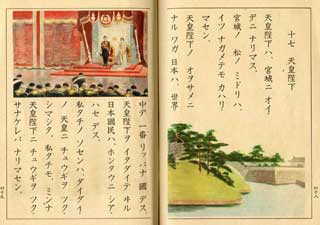 十七 天皇陛下
天皇陛下ハ、宮城ニ オイ
デニ ナリマス。
宮城ノ 松ノ ミドリハ、
イツ ナガメテモ カハリ
マセン。
天皇陛下ノ オヲサメニ
ナル ワガ 日本ハ、世界
中デ 一番 リッパナ 國 デス。
天皇陛下ヲ イタダイテ ヰル
日本國民ハ、ホンタウニ シア
ハセ デス。
私タチノ ソセンハ、ダイダイ
ノ 天皇ニ チュウギヲ ツク
シマシタ。私タチモ、ミンナ
天皇陛下ニ チュウギヲ ツク
サナケレバ ナリマセン。